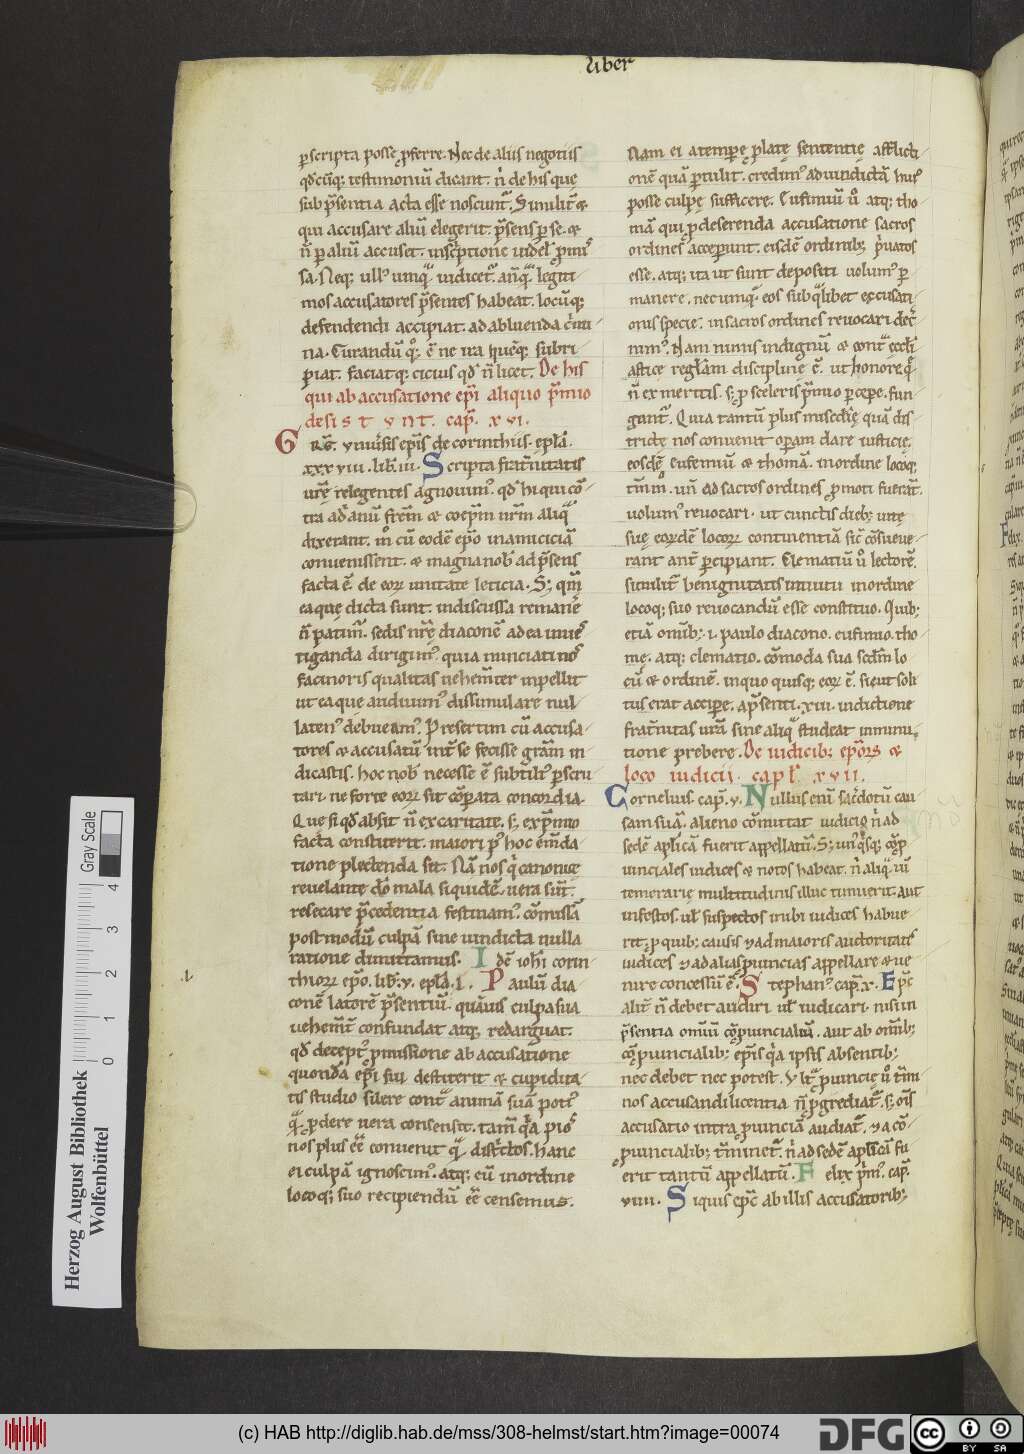 liber
p̲scripta posse p̲ferre. Nec de aliis negotiis
qd̄cūq; testimoniū dicant. n̄ de his que
sub p̄sentia acta esse noscunt̄. Similit̄ &
qui accusare aliū elegerit. p̄sens p̲ se. &
n̄ p̲ aliū accuset. inscͥptione uidel᷑ p̄mis
sa. Neq; ull᷒ umqͣ iudicet᷑. anͭqͣ legiti
mos accusatores p̄sentes habeat. locūq;
defendendi accipiat. ad abluenda cͥmi
na. Curandū qͦ; ē ne ita quēq; subri
piat. faciatq; cicius qd̄ n̄ licet. De his
qui ab accusatione ep̄i aliquo p̄mio
desist vnt. cap̄. xvi.
GRḠ. vniūsis ep̄is de corinthiis. ep̄la.
xxxviii. lib̄. iii. Scripta frat̄nitatis
ur̄e relegentes agnouim᷒. qd̄ hi qui cō
tra adͬanū frēm & coep̄m nr̄m aliqͣ
dixerant. m̊ cū eodē ep̄o in amiciciā
conuenissent. & magna nob̄ ad p̄sens
facta ē. de eoꝝ unitate leticia. S; qm̄
ea que dicta sunt. indiscussa remanē
n̄ patim᷑. sedis nr̄ę diaconē ad ea inues
tiganda dirigim᷒. quia nunciati nos
facinoris qualitas uehem̄ter inpellit
ut ea que audiuim᷒ dissimulare nul
laten᷒ debueam᷒. Presertim cū accusa
tores & accusatū int̄ se fecisse gram̄ in
dicastis. hoc nob̄ necesse ē subtilit᷑ p̲scru
tari. ne forte eoꝝ sit cōparata concordia.
Que si qd̄ absit n̄ ex caritate. s; ex p̄mio
facta constiterit. maiori p̲ hoc emēda
tione plectenda sit. Nā nos qͥ canonicę
reuelante dō mala siquidē. uera sūt.
resecare p̄cedentia festinam᷒. cōmissā
postmodū culpā sine uindicta nulla
ratione dimittamus. Idē ioh̄i corin
thioꝝ ep̄o. lib̄. v. ep̄la. l. Paulū dia
conē latorē p̄sentiū. quāuis culpa sua
uehem̄t confundat atq; redarguat.
qd̄ decept᷒ p̲missione ab accusatione
quondā ep̄i sui destiterit & cupidita
tis studio silere contͣ animā suā poti᷒
qͣ p̲dere uera consensit. tam̄ qͥa pio᷒
nos plus eē conuenit qͣ distͥctos. hanc
ei culpā ignoscim᷒. atq; eū in ordine
locoq; suo recipiendū eē censemus.
Nam ei a tempore p̲latę sententię afflicti
onē quā p̲tulit. credim᷒ ad uindictā hui᷒
posse culpę sufficere. Eufimiū ů atq; tho
mā qui p̲ deserenda accusatione sacros
ordines acceperunt. eisdē ordinib; pͥuatos
esse. atq; ita ut sunt depositi uolum᷒ p̲
manere. nec umqͣ eos sub qͣlibet excusati
onis specie. in sacros ordines reuocari decͬ
nim᷒. Nam nimis indignū & contͣ eccl̄i
astice regulam discipline ē. ut honore qͥ
n̄ ex meritis. s; p̲ sceleris p̄mio p̲cepe. fun
gant᷑. Quia tantū plus misc̄die quā dis
tricte nos conuenit operam dare iusticię.
eosdē eufemiū & thomā. in ordine locoq;
tm̄m. un̄ ad sacros ordines p̲moti fuerat᷑.
uolum᷒ reuocari. ut cunctis dieb; uite
suę eorundē locoꝝ continentiā sic̄ cōsueue
rant ant̄ p̲cipiant. Clematiū ů lectorē.
similit̄ benignitatis intuitu in ordine
locoq; suo reuocandū esse constituo. Quib;
etiā omīb;. i. paulo diacono. eufimio. tho
mę. atq; clematio. cōmoda sua scd̄m lo
cū & ordinē. in quo quisq; eoꝝ ē. sicut soli
tus erat accipe. a p̄senti. xiii. indictione
frat̄nitas urā sine aliqͣ studeat inminu
tione prebere. De iudicib; ep̄oꝝ &
loco iudicii. capl̄. xvii.
Cornelius. cap̄. v. Nullus enī sac̄dotū cau
sam suā. alieno cōmittat iudicio n̄ ad
sedē ap̄licā fuerit appellatū. S; un᷒qͥsq; cōp̲
uinciales iudices & notos habeat. n̄ aliqͣ uī
temerarię multitudinis illuc timuerit. aut
infestos. ul̄ suspectos inibi iudices habue
rit. p̲ quib; causis & ad maioris auctoritatis
iudices & ad alias p̲uincias appellare & ue
nire concessū ē. Stephan᷒. cap̄. x. Ep̄s
alit̄ n̄ debet audiri ul̄ iudicari. nisi in
p̄sentia omniū cōp̲uincialiū. aut ab omīb;
cōp̲uincialib; ep̄is. qͥa ipsis absentib;
nec debet nec potest. Vlͭra p̲uincię ů t̄mi
nos accusandi licentia n̄ p̲grediat᷑. s; oīs
accusatio intra p̲uinciā audiat᷑. & a cō
p̲uincialib; t̄minet᷑. n̄ ad sedē aplicā fu
erit tantū appellatū. Felix pͥm᷒. cap̄.
viiii. Siquis ep̄c ab illis accusatorib;
Gray Scale
4
3
2
1
0
Herzog August Bibliothek
Wolfenbüttel
(c) HAB http://diglib.hab.de/mss/308-helmst/start.htm?image=00074
DFG
cc
BY SA